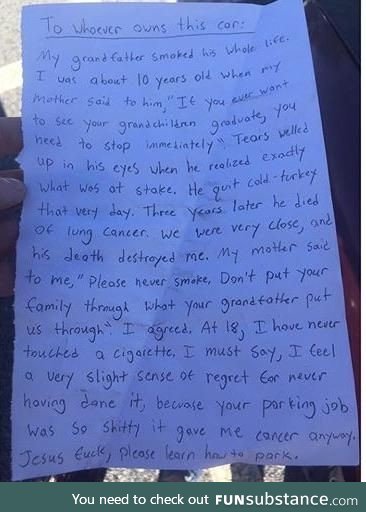 To whoever owns this car:
My grandfather smoked his whole life.
I was about 10 years old when my
mother said to him, "If you ever want
to see your grandchildren graduate, you
need to stop immediately". Tears welled
up in his eyes when he realized exactly
what was at stake. He quit cold-turkey
that very day. Three years later he died
of lung cancer. We were very close, and
his death destroyed me. My mother said
to me, "Please never smoke. Don't put your
family through what your grandfather put
us through". I agreed. At 18, I have never
touched a cigarette. I must say, I feel
a very slight sense of regret for never
having done it, because your parking job
was so shitty it gave me cancer anyway.
Jesus fuck, please learn how to park.
You need to check out FUNsubstance.com